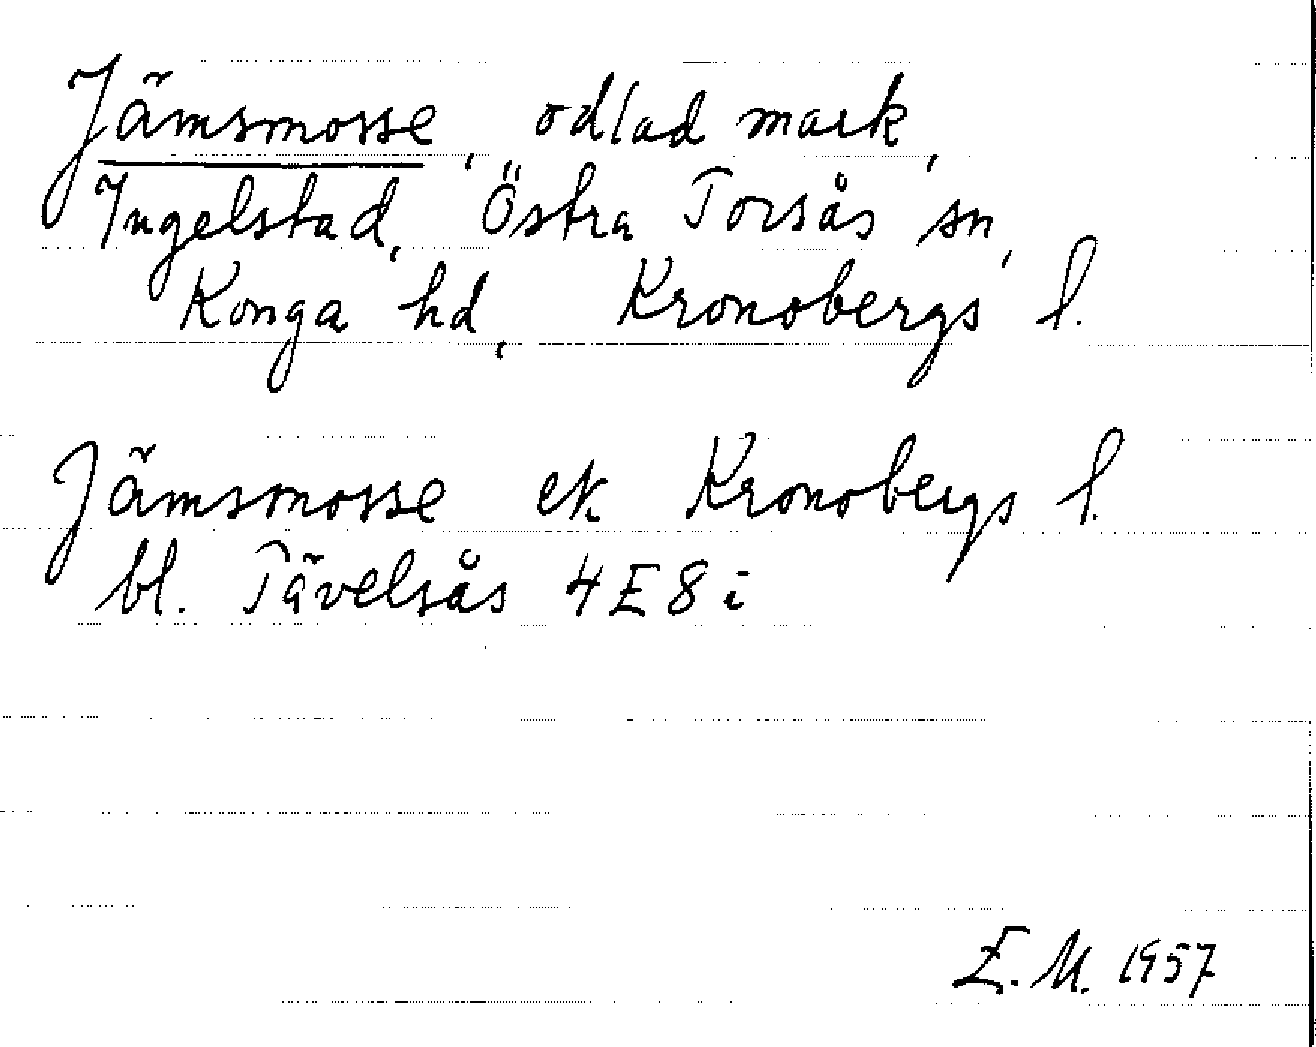 Jämsmosse, odlad mark,
Ingelstad, Östra Torsås sn,
Konga hd, Kronobergs l.
Jämsmosse ek Kronobergs l.
bl. Tävelsås 4E8i
E.M. 1957